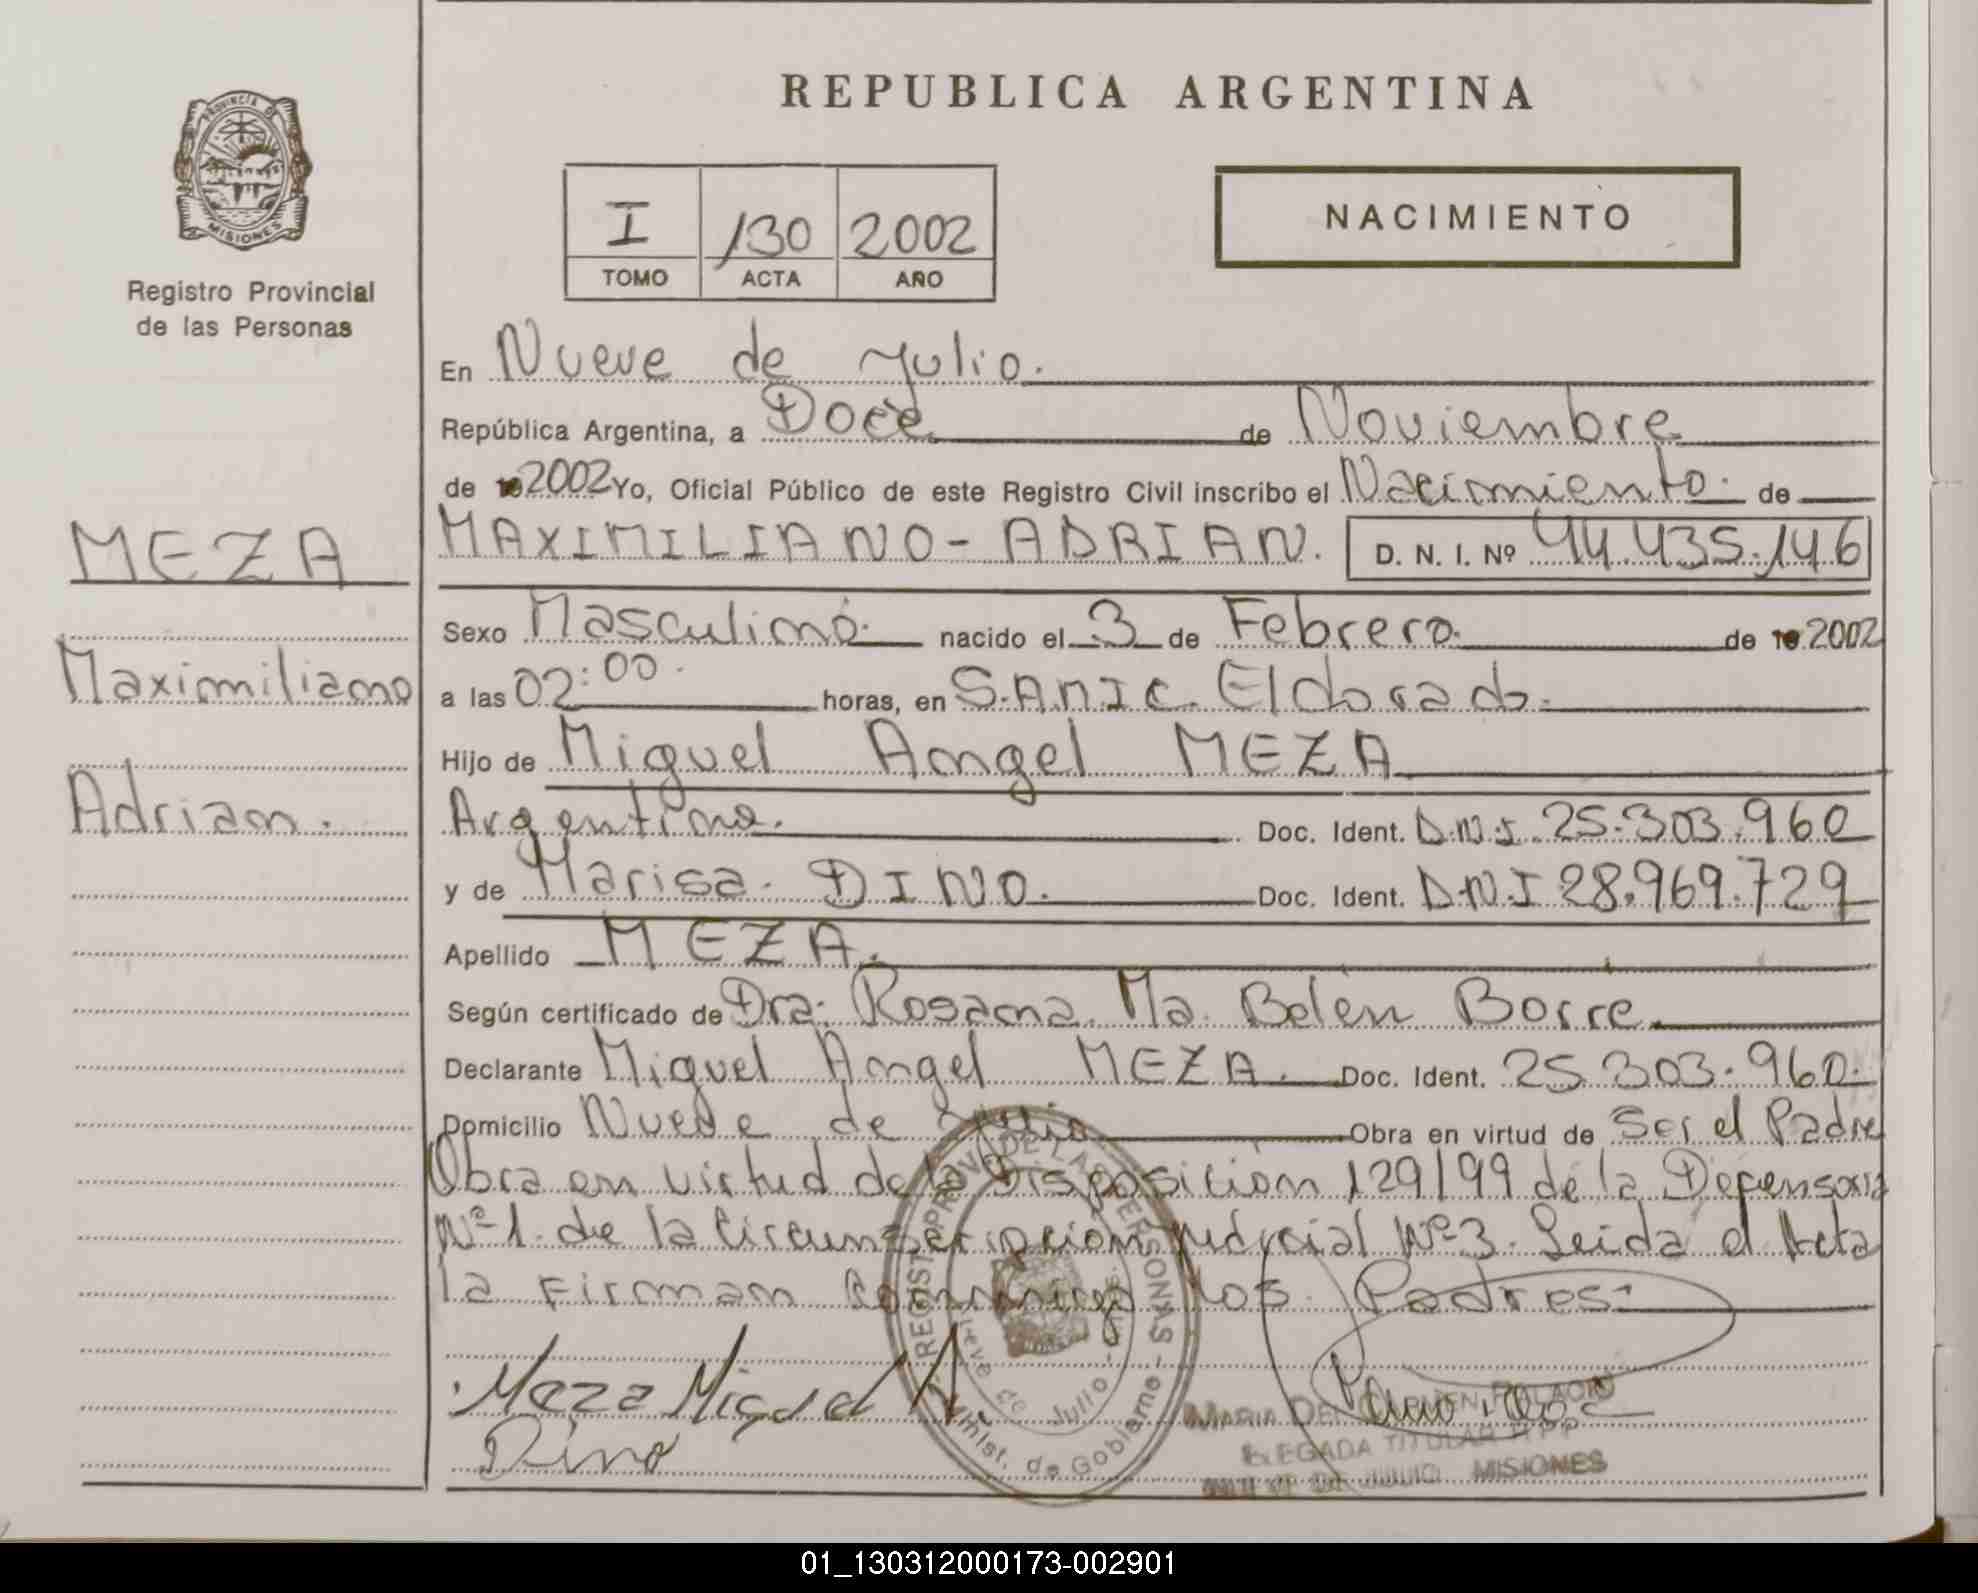 REPUBLICA ARGENTINA
PROVINCIA DE
MISIONES
Registro Provincial
de las Personas
I 130 2002
TOMO ACTA AÑO
NACIMIENTO
En Nueve de Julio.
República Argentina, a Doce de Noviembre
de 2002 Yo, Oficial Público de este Registro Civil inscribo el Nacimiento. de
MEZA
MAXIMILIANO-ADRIAN. D. N. I. Nº 44.435.146
Sexo Masculino. nacido el 3 de Febrero. de 2002
Maximiliano
a las 02:00. horas, en S.AMIC. Eldorado.
Hijo de Miguel Angel MEZA
Adrian.
Argentina. Doc. Ident. D.N.I. 25.303.960
y de Marisa. DINO. Doc. Ident. D.N.I 28.969.729
Apellido MEZA.
Según certificado de Dra. Rosana. Ma. Belén Borre.
Declarante Miguel Angel MEZA. Doc. Ident. 25.303.960.
Domicilio Nueve de Julio Obra en virtud de Ser el Padre
Obra en virtud de la Disposición 129/99 de la Defensoria
Nº1. de la Circunscripción judicial Nº3. Leida el Acta
la Firman conmigo los Padres.
REGIST. PROV. DE LAS PERSONAS
Nueve de Julio
Minist. de Gobierno
Meza Miguel A.
Dino
MARIA DEL CARMEN PALACIO
DELEGADA TITULAR R.P.P
MISIONES
01_130312000173-002901